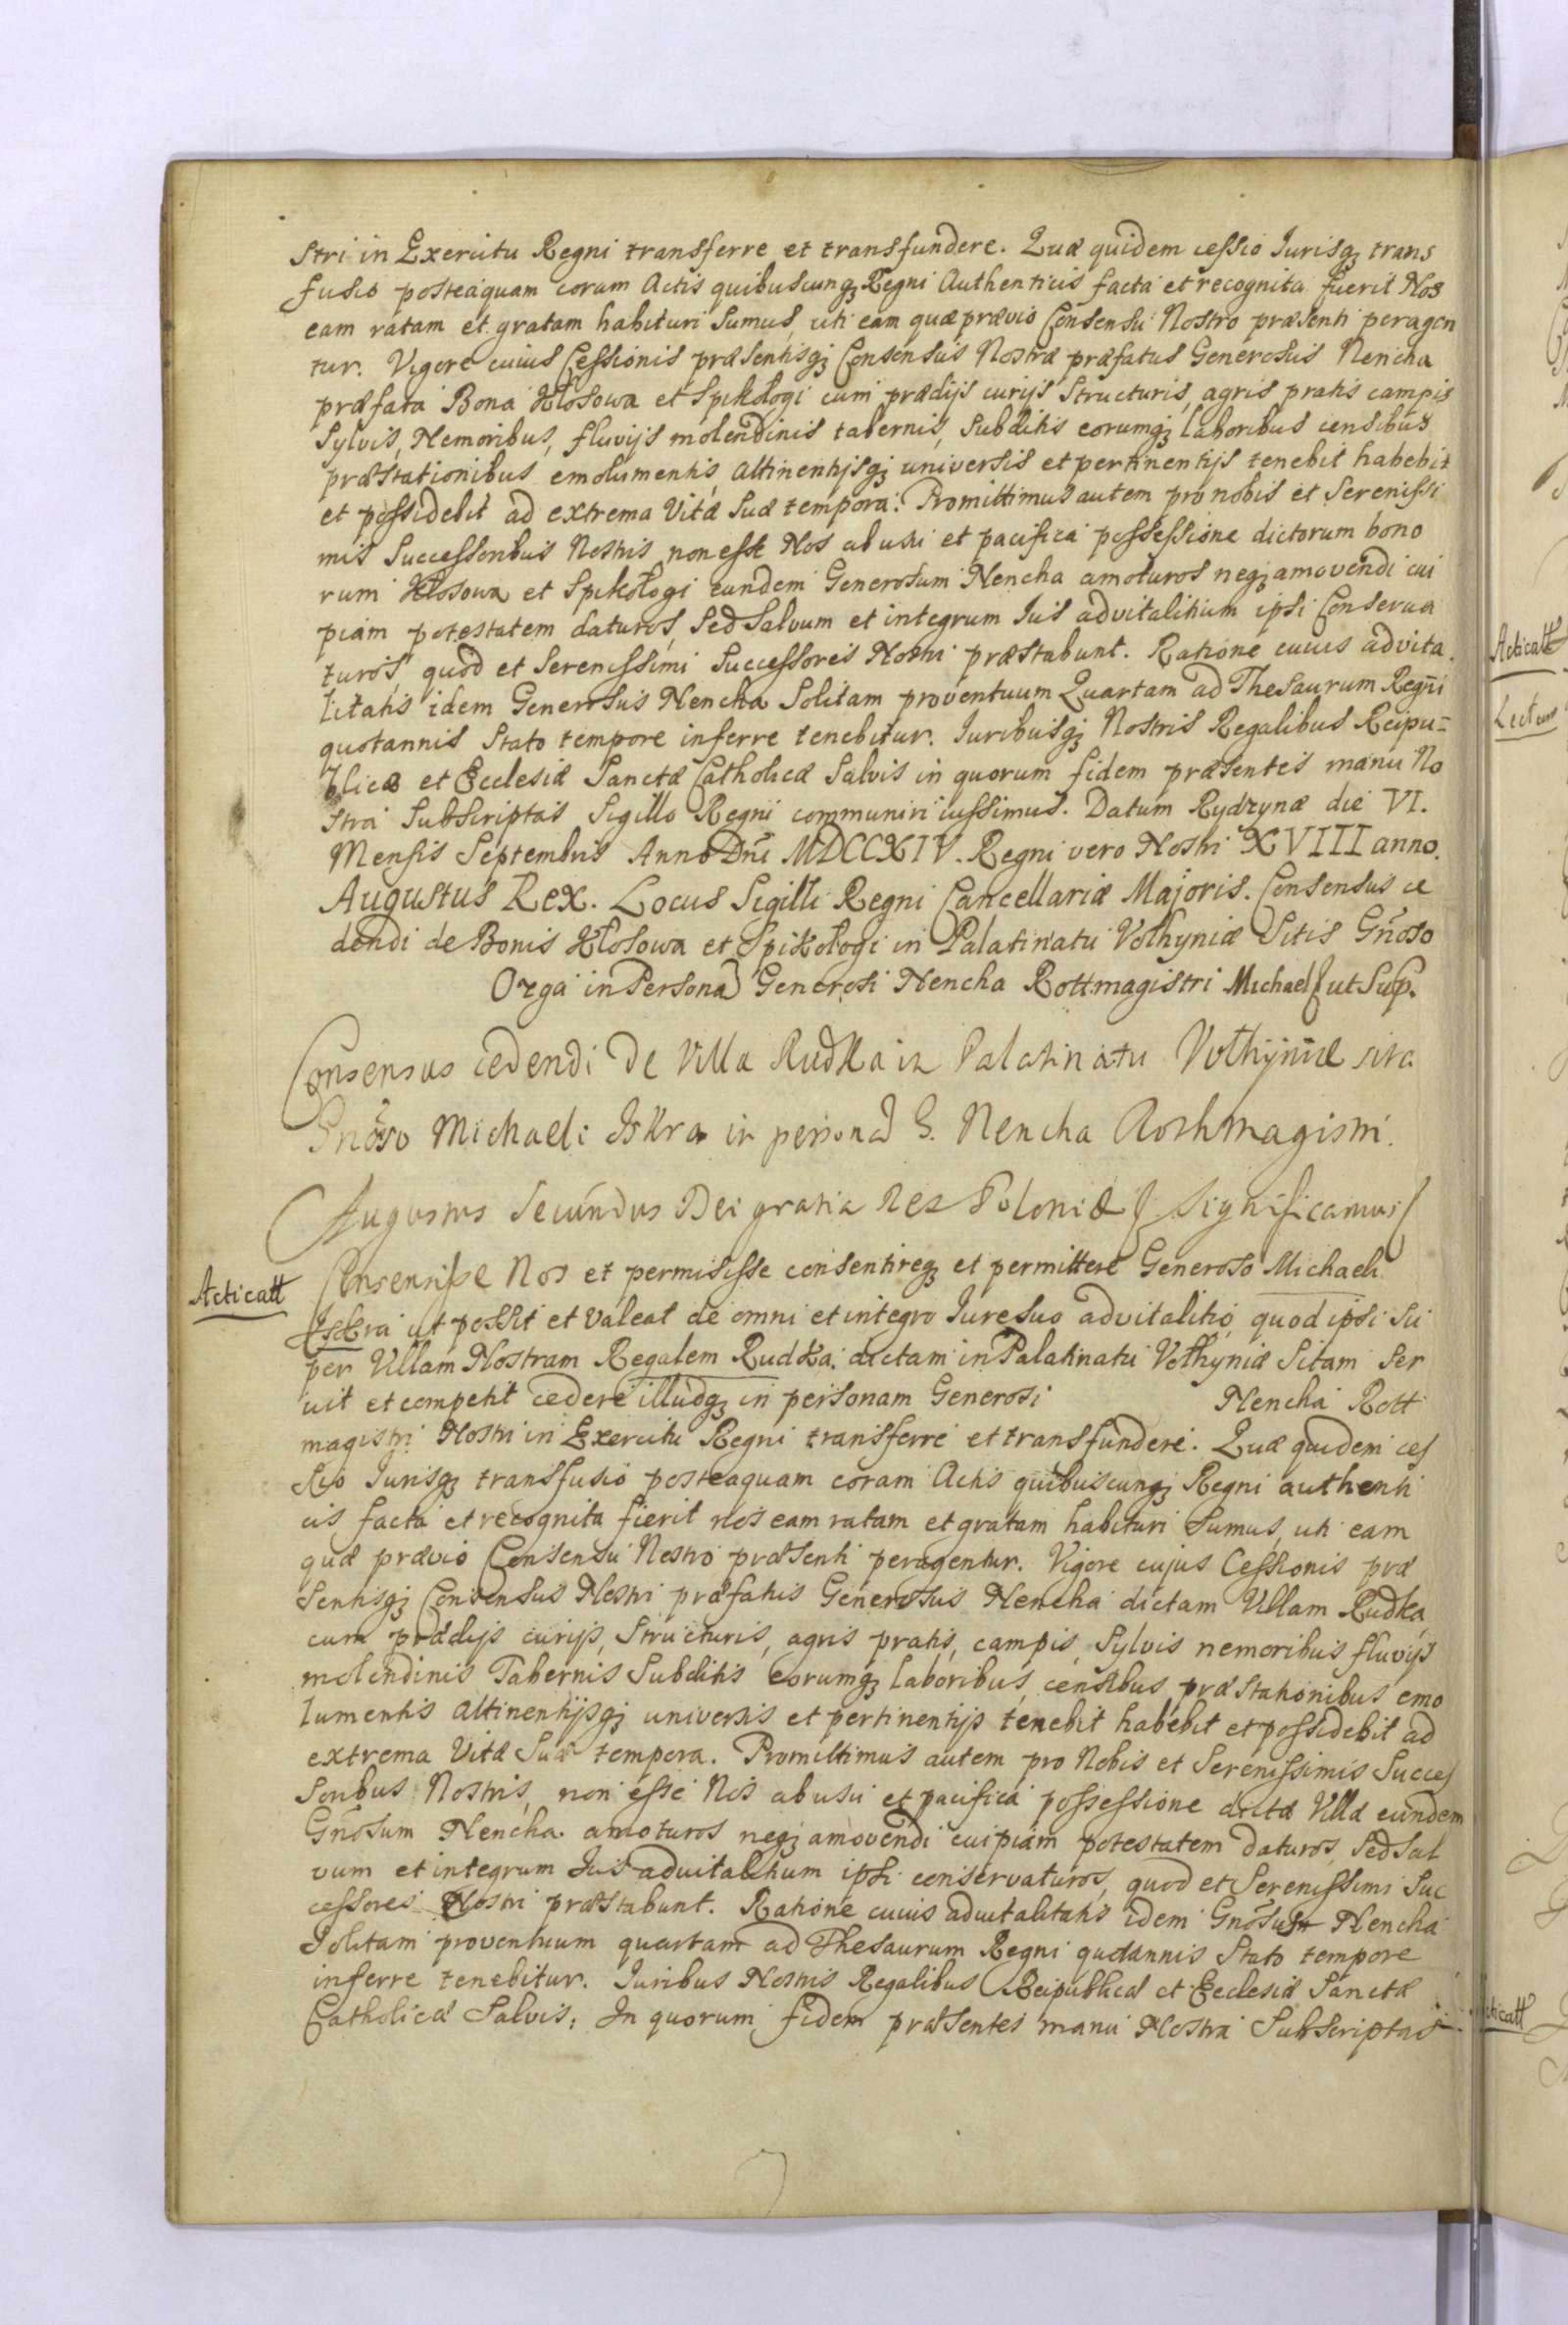 stri in Exercitu Regni transferre et transfundere. Quæ quidem cessio Jurisq; trans
fusio posteaquam coram Actis quibuscunq; Regni Authenticis facta et recognita fuerit Nos
eam ratam et gratam habituri sumus, uti eam quæ prævio Consensu Nostro præsenti peragen
tur. Vigore cuius Cessionis præsentisq; Consensus Nostræ præfatus Generosus Nencha
præfata Bona Kłosowa et Spikołogi cum prædijs curijs, structuris, agris pratis campis
sylvis, Nemoribus, fluvijs molendinis tabernis, subditis eorumq; laboribus censibus
præstationibus emolumentis, attinentijsq; universis et pertinentijs tenebit habebit
et possidebit ad extrema Vitæ suæ tempora. Promittimus autem pro nobis et Serenissi
mis Successoribus Nostris, non esse Nos ab usu et pacifica possessione dictorum bono
rum Kłosowa et Spikołogi eundem Generosum Nencha amoturos neq; amovendi cui
piam potestatem daturos, sed salvum et integrum Jus advitalitium ipsi Conserva
turos, quod et Serenissimi Successores Nostri præstabunt. Ratione cuius advita
litatis idem Generosus Nencha solitam proventuum Quartam ad Thesaurum Regni
quotannis stato tempore inferre tenebitur. Juribusq; Nostris Regalibus Reipu=
blicæ et Ecclesiæ Sanctæ Catholicæ salvis in quorum fidem præsentes manu No
stra subscriptas Sigillo Regni communiri iussimus. Datum Rydzynæ die VI.
Mensis Septembris Anno Dñi MDCCXIV. Regni vero Nostri XVIII anno.
Augustus Rex. Locus Sigilli Regni Cancellariæ Majoris. Consensus ce
dendi de Bonis Kłosowa et Spikołogi in Palatinatu Volhyniæ sitis Gñoso
Orga in Personã Generosi Nencha Rottmagistri Michael ut Sup.
Consensus cedendi de Villa Rudka in Palatinatu Volhyniæ sita
Gnõso Michaeli Iskra in personã G. Nencha Rothmagistri.
Augustus Secundus Dei gratia Rex Poloniæ Significamus
Acticatt
Consensisse Nos et permisisse consentireq; et permittere Generoso Michaeli
Iskra ut possit et valeat de omni et integro Jure suo advitalitio, quod ipsi su
per Villam Nostram Regalem Rudka dictam in Palatinatu Volhyniæ sitam ser
vit et competit cedere illudq; in personam Generosi Nencha Rott
magistri Nostri in Exercitu Regni transferre et transfundere. Quæ quidem ces
sio Jurisq; transfusio posteaquam coram Actis quibuscunq; Regni authenti
cis facta et recognita fierit nos eam ratam et gratam habituri sumus, uti eam
quæ prævio Consensu Nostro præsenti peragentur. Vigore cujus Cessionis præ
sentisq; Consensus Nostri præfatus Generosus Nencha dictam Villam Rudka
cum prædijs curijs, structuris, agris pratis, campis, sylvis nemoribus fluvijs
molendinis Tabernis subditis eorumq; laboribus, censibus præstationibus emo
lumentis attinentijsq; universis et pertinentijs tenebit habebit et possidebit ad
extrema Vitæ suæ tempora. Promittimus autem pro Nobis et Serenissimis Succes
soribus Nostris, non esse Nos ab usu et pacifica possessione dictæ Villæ eundem
Gñosum Nencha amoturos neq; amovendi cuipiam potestatem daturos, sed sal
vum et integrum Jus advitalitium ipsi conservaturos, quod et Serenissimi Suc
cessores Nostri præstabunt. Ratione cuius advitalitatis idem Gnõsus Nencha
solitam proventuum quartam ad Thesaurum Regni quotannis stato tempore
inferre tenebitur. Juribus Nostris Regalibus Reipublicæ et Ecclesiæ Sanctæ
Catholicæ salvis, In quorum fidem præsentes manu Nostra subscriptas
Acticatt
Lectum